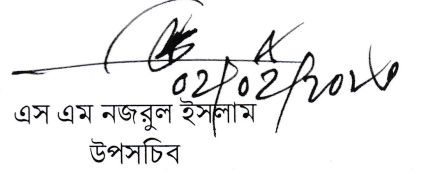 02/02/2026
এস এম নজরুল ইসলাম
উপসচিব